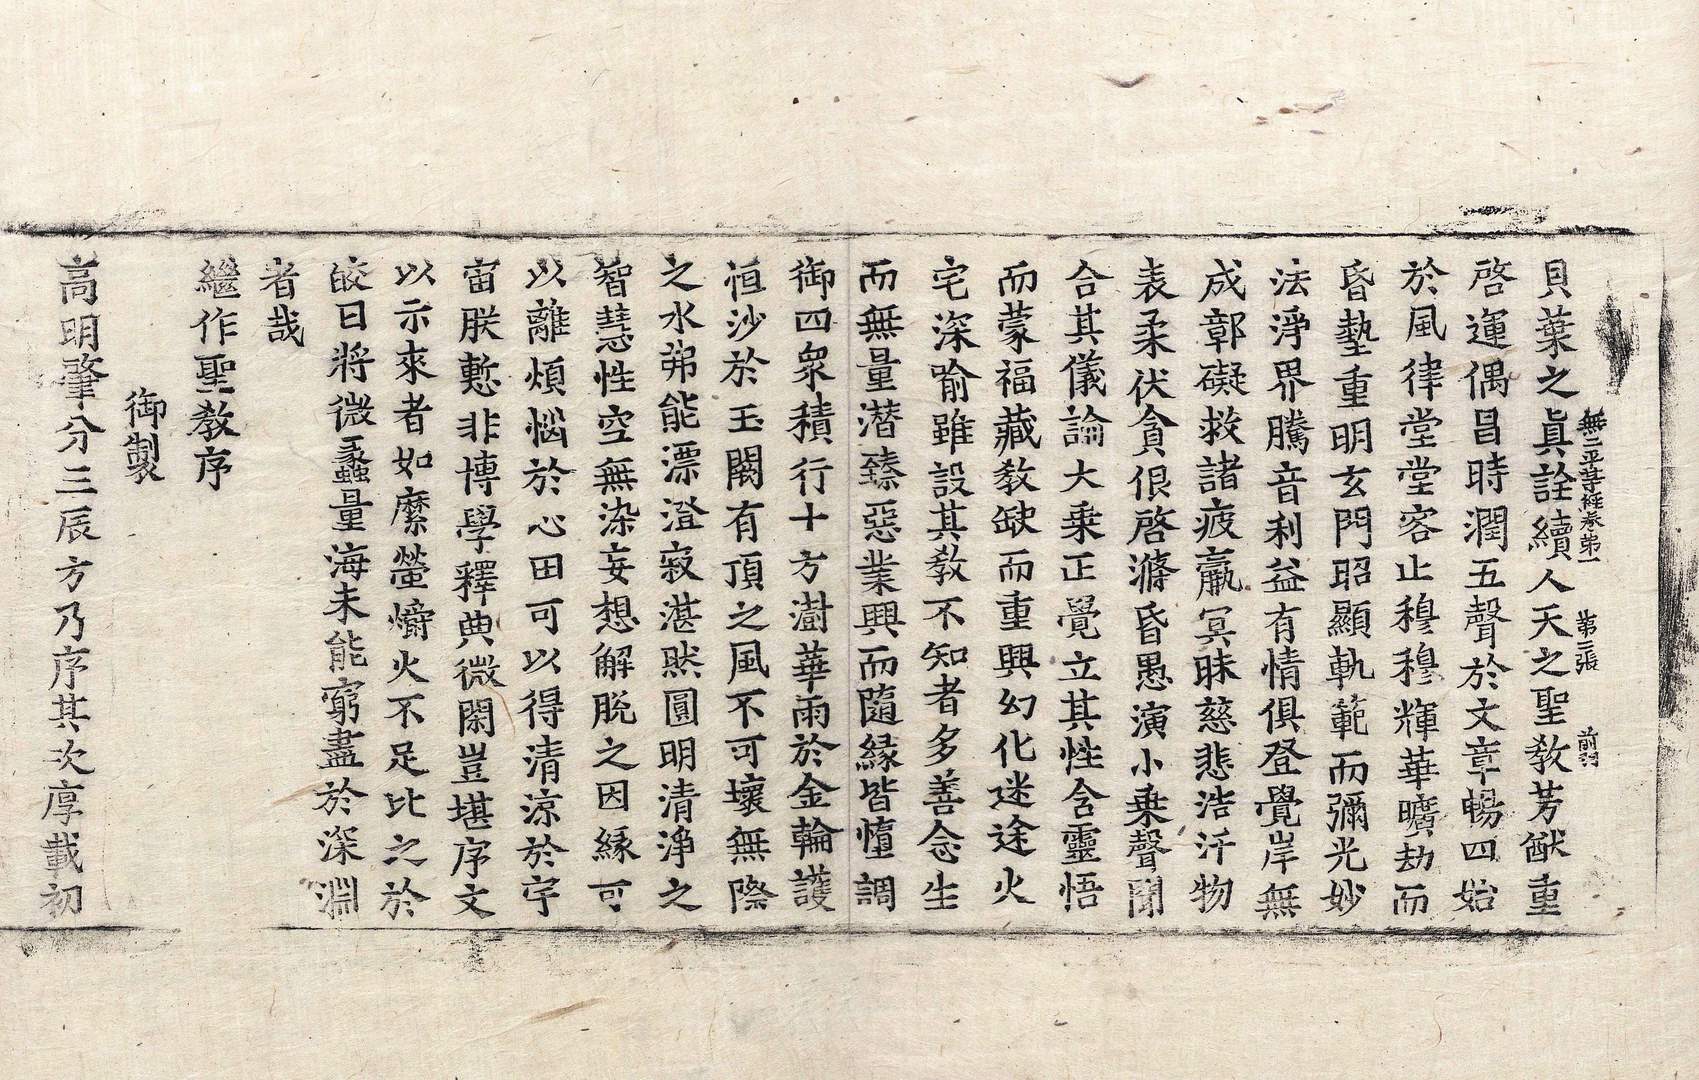 無二平等經卷第一 第二張 前
貝葉之眞詮續人天之聖教芳猷重
啓運偶昌時潤五聲於文章暢四始
於風律堂堂容止穆穆輝華曠劫而
昏墊重明玄門昭顯軌範而彌光妙
法淨界騰音利益有情俱登覺岸無
成鄣礙救諸疲羸冥昧慈悲浩汗物
表柔伏貪很啓滌昏愚演小乘聲聞
合其儀論大乘正覺立其性含靈悟
而蒙福藏教缺而重興幻化迷途火
宅深喻雖設其教不知者多善念生
而無量潛臻惡業興而隨緣皆墮調
御四衆積行十方澍華雨於金輪護
恒沙於玉闕有頂之風不可壞無際
之水弗能漂澄寂湛然圓明清淨之
智慧性空無染妄想解脫之因緣可
以離煩惱於心田可以得清涼於宇
宙朕慙非博學釋典微閑豈堪序文
以示來者如縻螢爝火不足比之於
皎日將微蠡量海未能窮盡於深淵
者哉
繼作聖教序
御製
高明肇分三辰方乃序其次厚載初